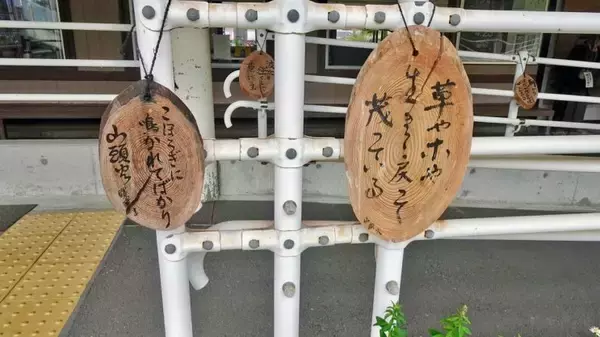 草や木や
生きて戻つて
茂つてゐる
こほろぎに
鳴かれてばかり
山頭火